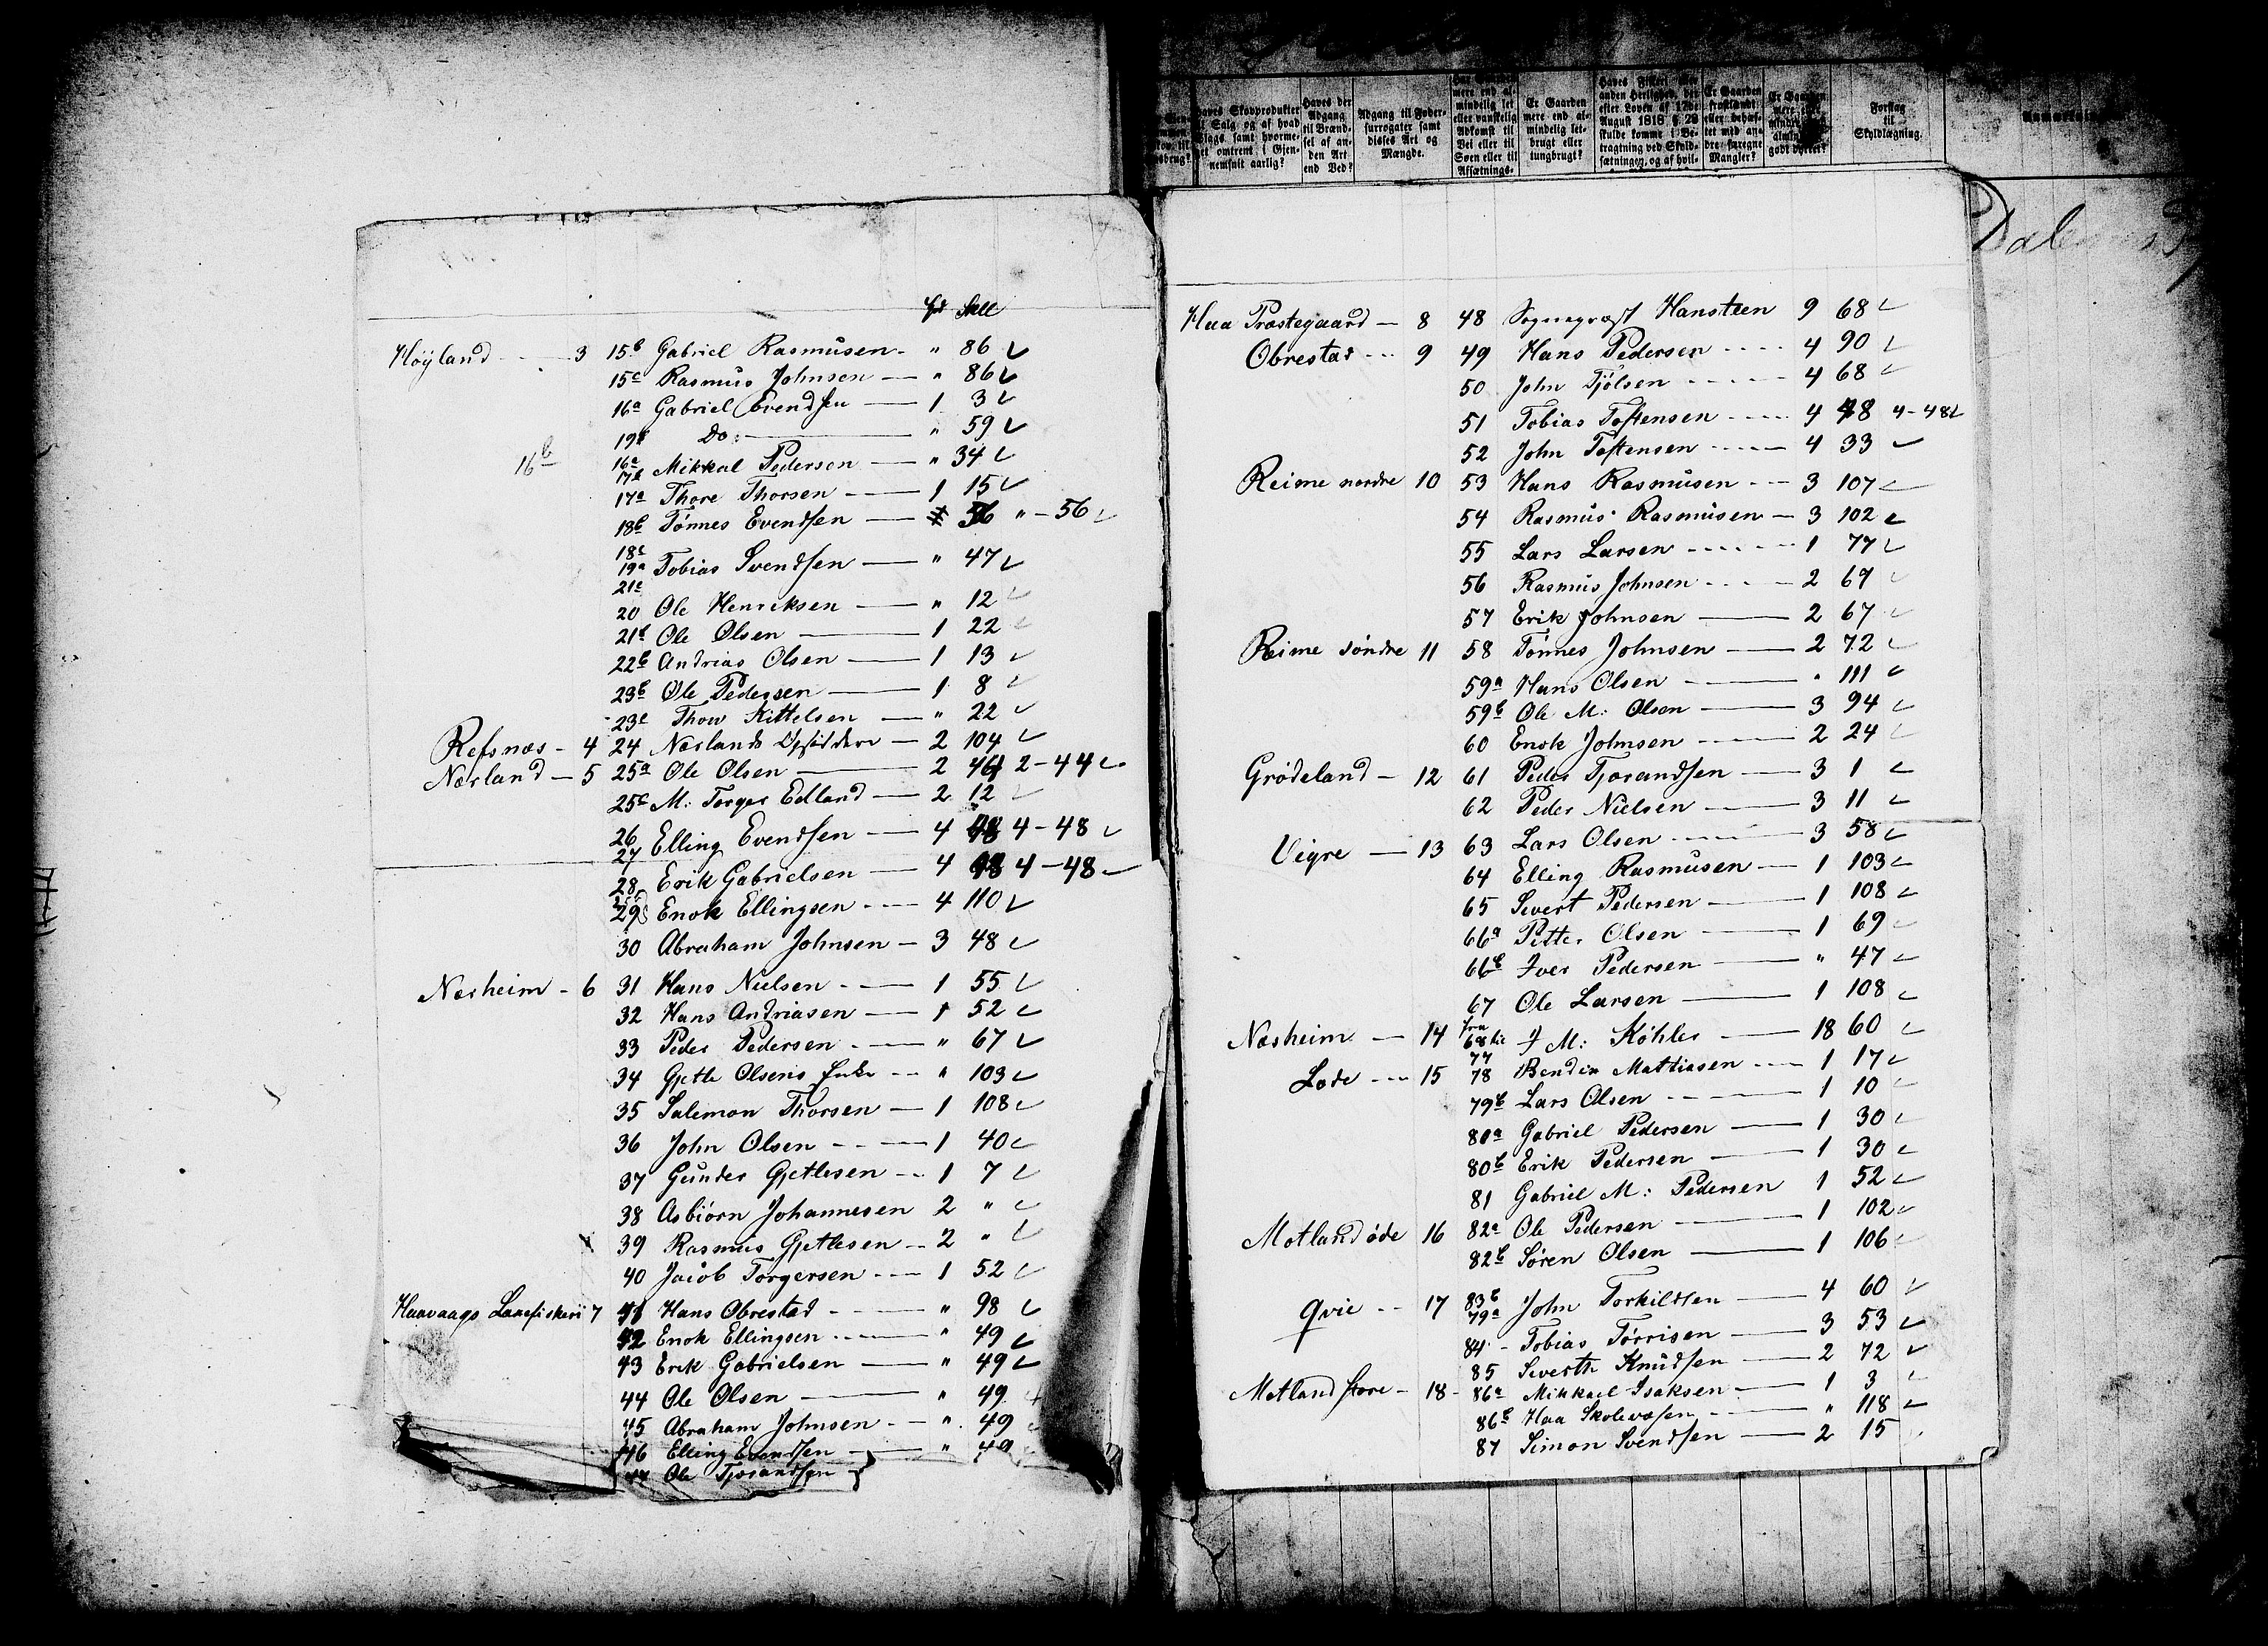 Spd Skill
Höyland - 3 15b Gabriel Rasmusen - " 86
15c Rasmus Johnsen — " 86
16a Gabriel Evendsen — 1 3
19b Do: — " 59
16b 16a 17b Mikkal Pedersen — " 34
17a Thore Thorsen — 1 15
18b Tönnes Evendsen — 56 " - 56
18c 19a 21a Tobias Svendsen — " 47
20 Ole Henriksen — " 12
21b Ole Olsen — 1 22
22b Andrias Olsen — 1 13
23b Ole Pedersen — 1 8
23c Thow Kittelsen — " 22
Refsnæs - 4 24 Nærlands Opsiddere — 2 104
Nærland — 5 25a Ole Olsen — 2 44 2 - 44
25c M: Torger Edland — 2 12
26 27 Elling Evendsen — 4 48 4 - 48
28 Erik Gabrielsen — 4 48 4 - 48
29 Enok Ellingsen — 4 110
30 Abraham Johnsen — 3 48
Nærheim - 6 31 Hans Nielsen — 1 55
32 Hans Andriasen — 1 52
33 Peder Pedersen — " 67
34 Gjetle Olsens Enke — " 103
35 Salemon Thorsen — 1 108
36 John Olsen — 1 40
37 Gunder Gjetlesen — 1 7
38 Asbiörn Johannesen 2 "
39 Rasmus Gjetlesen — 2 "
40 Jacob Torgersen — 1 52
Haavaags Laxefiskeri 7 41 Hans Obrestad — " 98
42 Enok Ellingsen — " 49
43 Erik Gabrielsen — " 49
44 Ole Olsen — " 49
45 Abraham Johnsen — " 49
46 Elling Evendsen — " 49
47 Ole Tjorandsen
Haves Skovprodukter til Salg og af hvad Slags samt hvormeget omtrent i Gjennemsnit aarlig?
Haves der Adgang til Brændsel af anden Art end Ved?
Adgang til Fodersurrogater samt disses Art og Mængde.
mere end almindelig let eller vanskelig Adkomst til Vei eller til Søen eller til Afsætnings-
Er Gaarden mere end almindelig letbrugt eller tungbrugt?
Haves Fiskeri eller anden Herlighed, der efter Loven af 17de August 1818 § 28 skulde komme i Betragtning ved Skyldsætningen, og af hvil-
Er Gaarden frostlændt eller behæftet med andre særegne Mangler?
Er Gaarden mere eller mindre end almindelig godt dyrket?
Forslag til Skyldlægning.
Anmærkninger
Haa Præstegaard — 8 48 Sognepræst Hansteen 9 68
Obrestad - 9 49 Hans Pedersen — 4 90
50 John Tjölsen — 4 68
51 Tobias Toftensen — 4 48 4 - 48
52 John Toftensen — 4 33
Reime nordre 10 53 Hans Rasmusen — 3 107
54 Rasmus Rasmusen — 3 102
55 Lars Larsen — 1 77
56 Rasmus Johnsen — 2 67
57 Erik Johnsen — 2 67
Reime söndre 11 58 Tönnes Johnsen — 2 72
59a Hans Olsen — " 111
59b Ole M: Olsen — 3 94
60 Enok Johnsen — 2 24
Grödeland — 12 61 Peder Tjorandsen — 3 1
62 Peder Nielsen — 3 11
Vigre — 13 63 Lars Olsen — 3 58
64 Elling Rasmusen — 1 103
65 Sivert Pedersen — 1 108
66a Petter Olsen — 1 69
66b Iver Pedersen — " 47
67 Ole Larsen — 1 108
Næsheim — 14 fra 68 til 77 J M: Köhler — 18 60
Lode — 15 78 Bendix Mattiasen — 1 17
79b Lars Olsen — 1 10
80a Gabriel Pedersen — 1 30
80b Erik Pedersen — 1 30
81 Gabriel M: Pedersen 1 52
Motland öde 16 82a Ole Pedersen — 1 102
82b Sören Olsen — 1 106
Qvie — 17 83b 79a John Torkildsen — 4 60
84 - Tobias Törrisen — 3 53
85 Siverth Knudsen — 2 72
Motland store — 18 - 86a Mikkael Isaksen — 1 3
86b Haa Skolevæsen — " 118
87 Simon Svendsen — 2 15